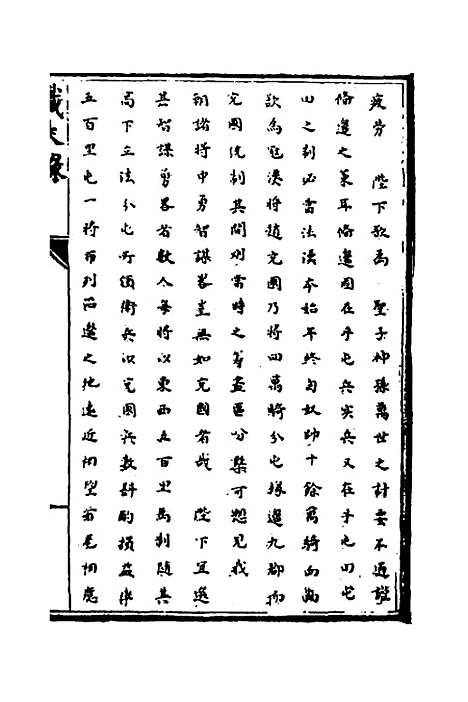 疲勞　陛下欲爲　聖子神孫萬世之計要不過謹
備邊之策耳備邊固在乎屯兵實兵又在乎屯田屯
田之制必當法漢本始年終匈奴帥十餘萬騎而南
欲爲寇漢將趙充國乃將四萬騎分屯緣邊九郡而
充國統制其間則當時之籌畫區分槩可想見我
朝諸將中勇智謀畧豈無如充國者哉　陛下宜選
其智謀勇畧者數人每將以東西五百里爲制隨其
高下立法分屯所領衛兵以充國兵數斟酌損益率
五百里屯一將布列沿邊之地遠近相望首尾相應